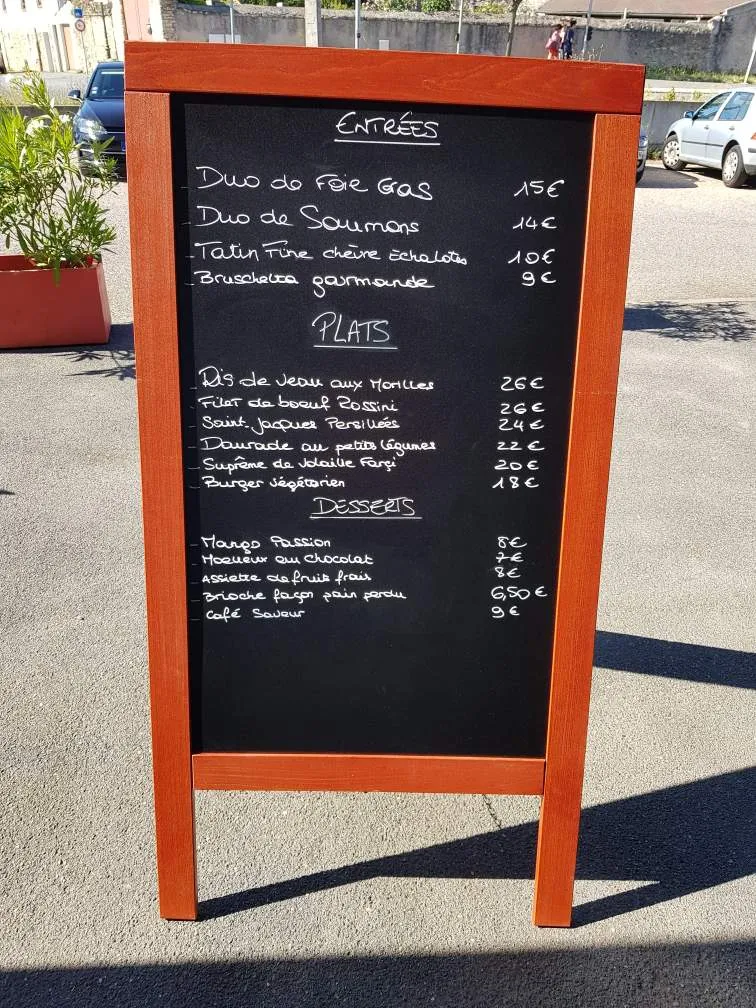 ENTRÉES
Duo de Foie Gas 15€
Duo de Saumons 14€
Tatin Fine chèvre Echalotes 10€
Bruschetta gourmande 9€
PLATS
Ris de veau aux Morilles 26€
Filet de boeuf Rossini 26€
Saint-Jacques Persillées 24€
Daurade au petits légumes 22€
Suprême de Volaille Farçi 20€
Burger végétarien 18€
DESSERTS
Mango Passion 8€
Moelleux au Chocolat 7€
Assiette de fruit frais 8€
Brioche façon pain perdu 6,50€
Café Saveur 9€